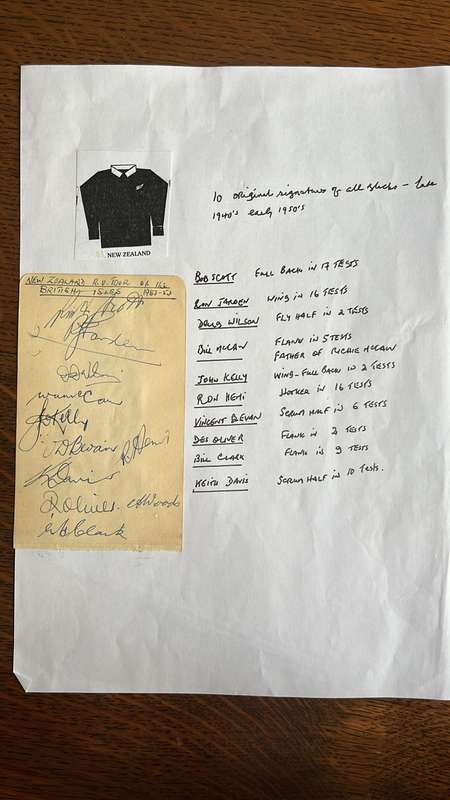 NEW ZEALAND
10 original signatures of all blacks - late
1940's early 1950's
NEW ZEALAND R.U. TOUR OF THE
BRITISH ISLES 1953-54
R Jarden
BOB SCOTT FULL BACK IN 17 TESTS
RON JARDEN WING IN 16 TESTS
DOUG WILSON FLY HALF IN 2 TESTS
BILL McCAW FLANK IN 5 TESTS
FATHER OF RICHIE McCAW
JOHN KELLY WING-FULL BACK IN 2 TESTS
RON HEMI HOOKER IN 16 TESTS
VINCENT BEVAN SCRUM HALF IN 6 TESTS
DES OLIVER FLANK IN 2 TESTS
BILL CLARK FLANK IN 9 TESTS
KEITH DAVIS SCRUM HALF IN 10 TESTS.
DDWilson
WmMcCaw
JWKelly
VD Bevan R Hemi
K Davis
D Oliver. CAWoods
WHClark